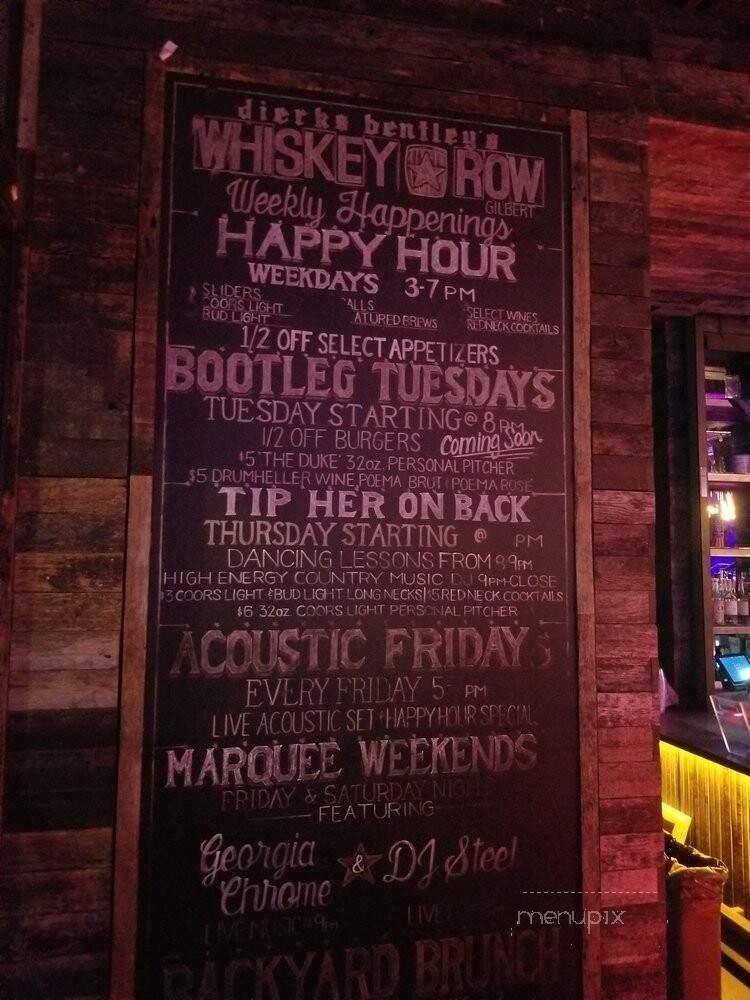 dierks bentley's
WHISKEY ROW
GILBERT
Weekly Happenings
HAPPY HOUR
WEEKDAYS 3-7 PM
SLIDERS
COORS LIGHT
BUD LIGHT
ALLS
ATURED BREWS
SELECT WINES
REDNECK COCKTAILS
1/2 OFF SELECT APPETIZERS
BOOTLEG TUESDAYS
TUESDAY STARTING @ 8 PM
1/2 OFF BURGERS coming soon
$5 'THE DUKE' 32oz. PERSONAL PITCHER
$5 DRUMHELLER WINE, POEMA BRUT | POEMA ROSE
TIP HER ON BACK
THURSDAY STARTING @ PM
DANCING LESSONS FROM 8-9PM
HIGH ENERGY COUNTRY MUSIC DJ 9PM-CLOSE
$3 COORS LIGHT & BUD LIGHT LONG NECKS | $5 REDNECK COCKTAILS
$6 32oz. COORS LIGHT PERSONAL PITCHER
ACOUSTIC FRIDAYS
EVERY FRIDAY 5- PM
LIVE ACOUSTIC SET HAPPY HOUR SPECIAL
MARQUEE WEEKENDS
FRIDAY & SATURDAY NIGH
FEATURING
Georgia Chrome & DJ Steel
LIVE
BACKYARD BRUNCH
menupix